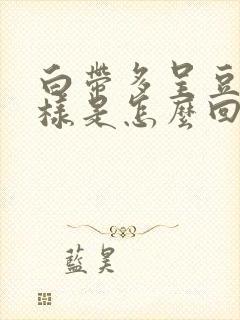 白帶多呈豆
樣是怎麼回
藍昊